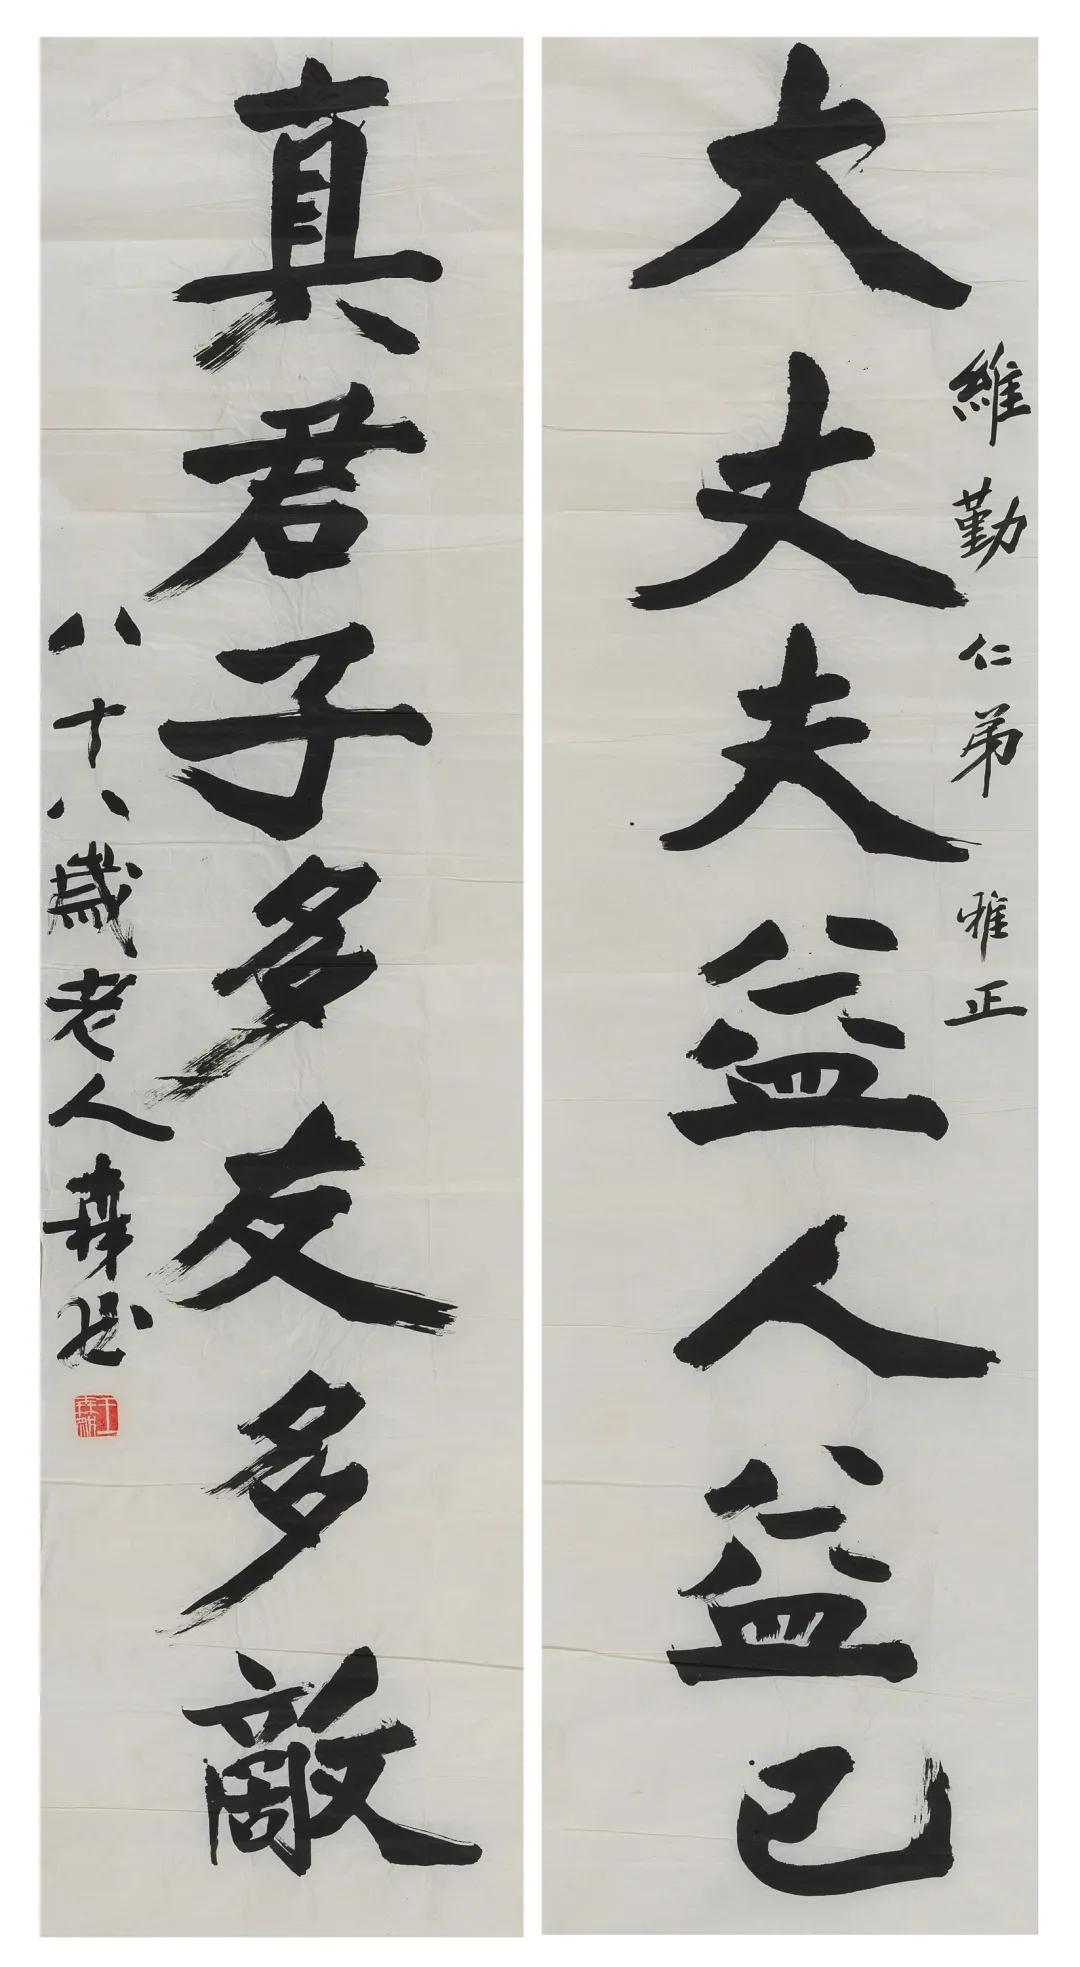 維勤仁弟 雅正
大丈夫益人益己
真君子多友多敵
八十八歲老人